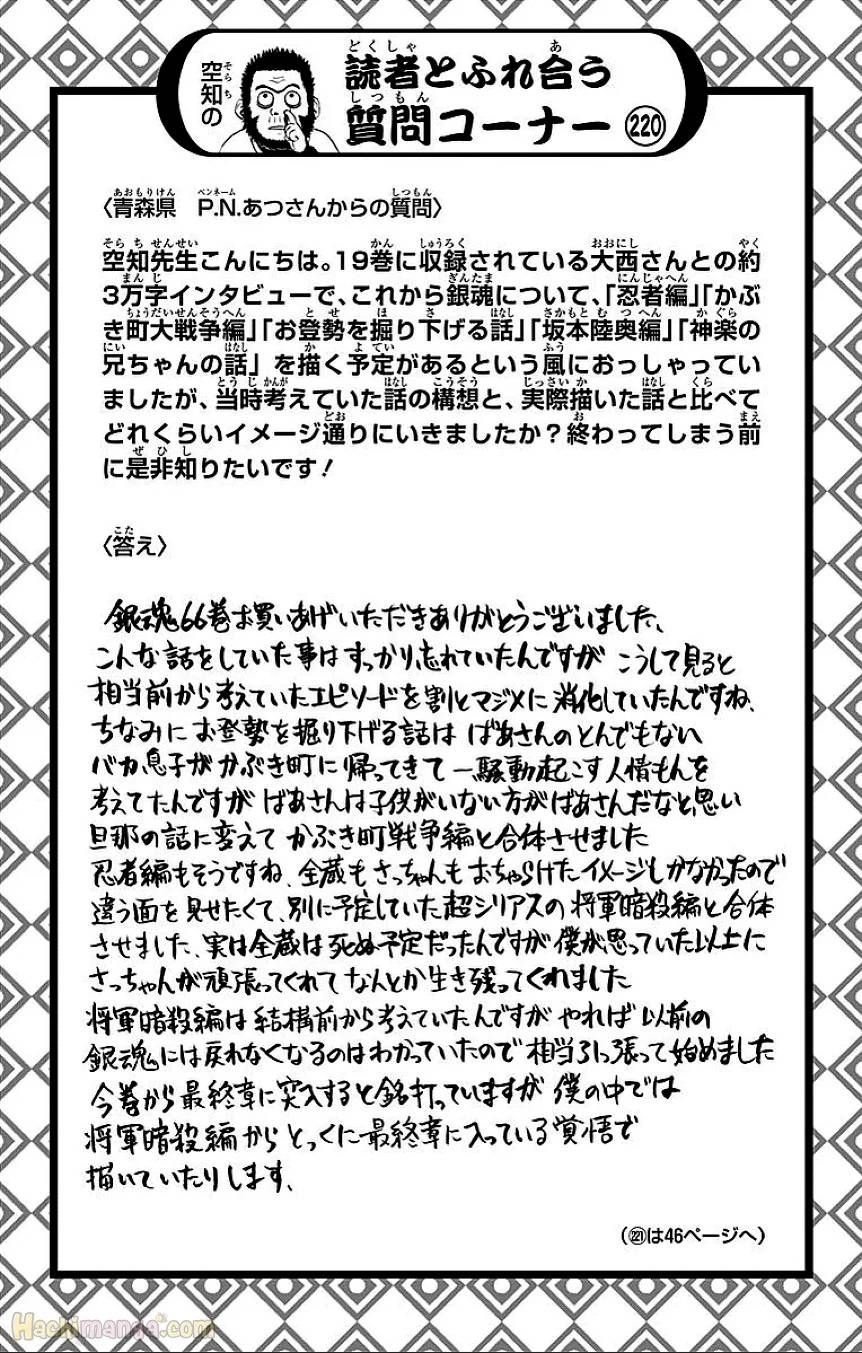 空知の
読者とふれ合う
質問コーナー 220
〈青森県 P.N.あつさんからの質問〉
空知先生こんにちは。19巻に収録されている大西さんとの約
3万字インタビューで、これから銀魂について、「忍者編」「かぶ
き町大戦争編」「お登勢を掘り下げる話」「坂本陸奥編」「神楽の
兄ちゃんの話」を描く予定があるという風におっしゃってい
ましたが、当時考えていた話の構想と、実際描いた話と比べて
どれくらいイメージ通りにいきましたか?終わってしまう前
に是非知りたいです!
〈答え〉
銀魂66巻お買いあげいただきありがとうございました、
こんな話をしていた事はすっかり忘れていたんですが こうして見ると
相当前から考えていたエピソードを割とマジメに消化していたんですね、
ちなみにお登勢を掘り下げる話は ばあさんのとんでもない
バカ息子がかぶき町に帰ってきて 一騒動起こす人情もんを
考えてたんですが ばあさんは子供がいない方がばあさんだなと思い
旦那の話に変えて かぶき町戦争編と合体させました
忍者編もそうですね、全蔵もさっちゃんもおちゃらけたイメージしかなかったので
違う面を見せたくて、別に予定していた超シリアスの将軍暗殺編と合体
させました、実は全蔵は死ぬ予定だったんですが僕が思っていた以上に
さっちゃんが頑張ってくれてなんとか生き残ってくれました
将軍暗殺編は結構前から考えていたんですが やれば以前の
銀魂には戻れなくなるのはわかっていたので相当引っ張って始めました
今巻から最終章に突入すると銘打っていますが 僕の中では
将軍暗殺編からとっくに最終章に入っている覚悟で
描いていたりします、
(221は46ページへ)
Hachimanga.com